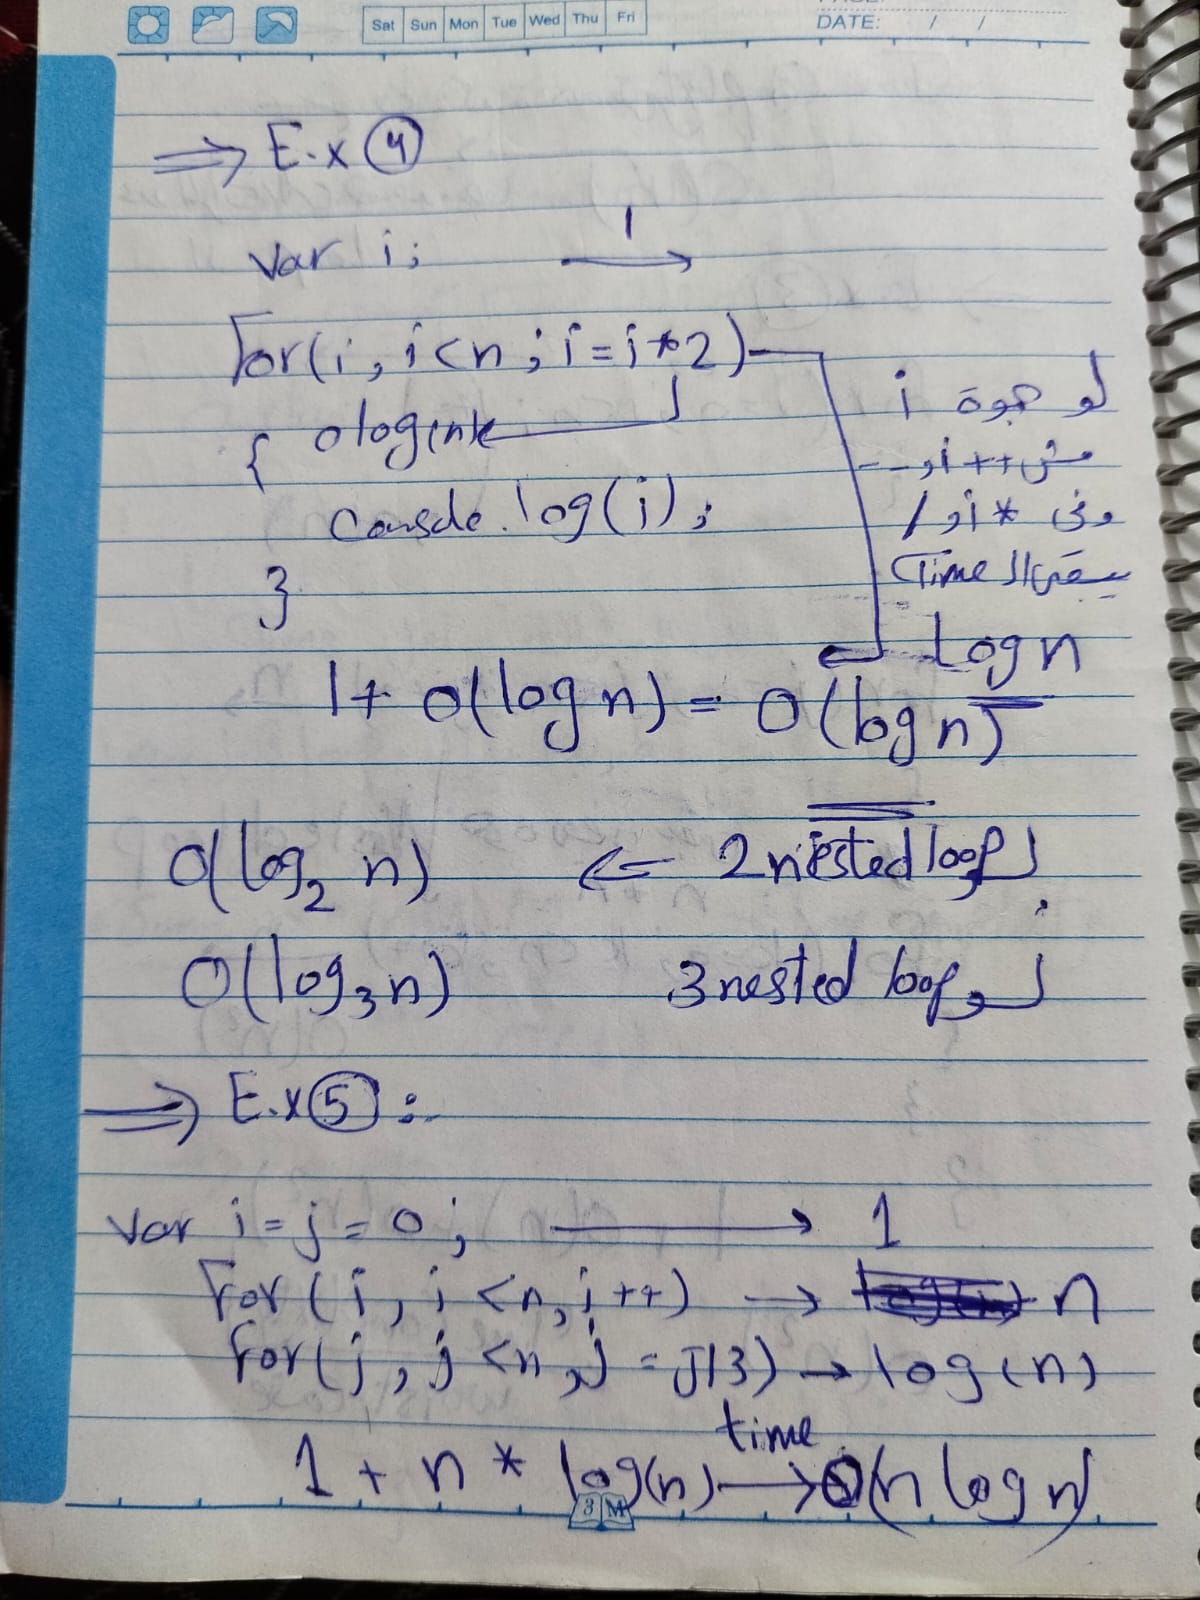 Sat Sun Mon Tue Wed Thu Fri
DATE: / /
⇒ E.x ④
var i; 1 →
For(i, i<n; i=i*2)
{ o log(n)
console.log(i);
}
لو جوة i
مش ++ أو --
وفى * أو /
يبقى ال Time
Log n
1+ O(log n) = O(log n)
لو 2 nested loop ⇐ O(log₂ n)
لو 3 nested loop O(log₃ n)
⇒ E.x ⑤ :-
Var i = j = 0; → 1
For (i, i <n, i ++) → n
For(j, j <n, j = j/3) → log(n)
1 + n * log(n) time → O(n log n)
3 M